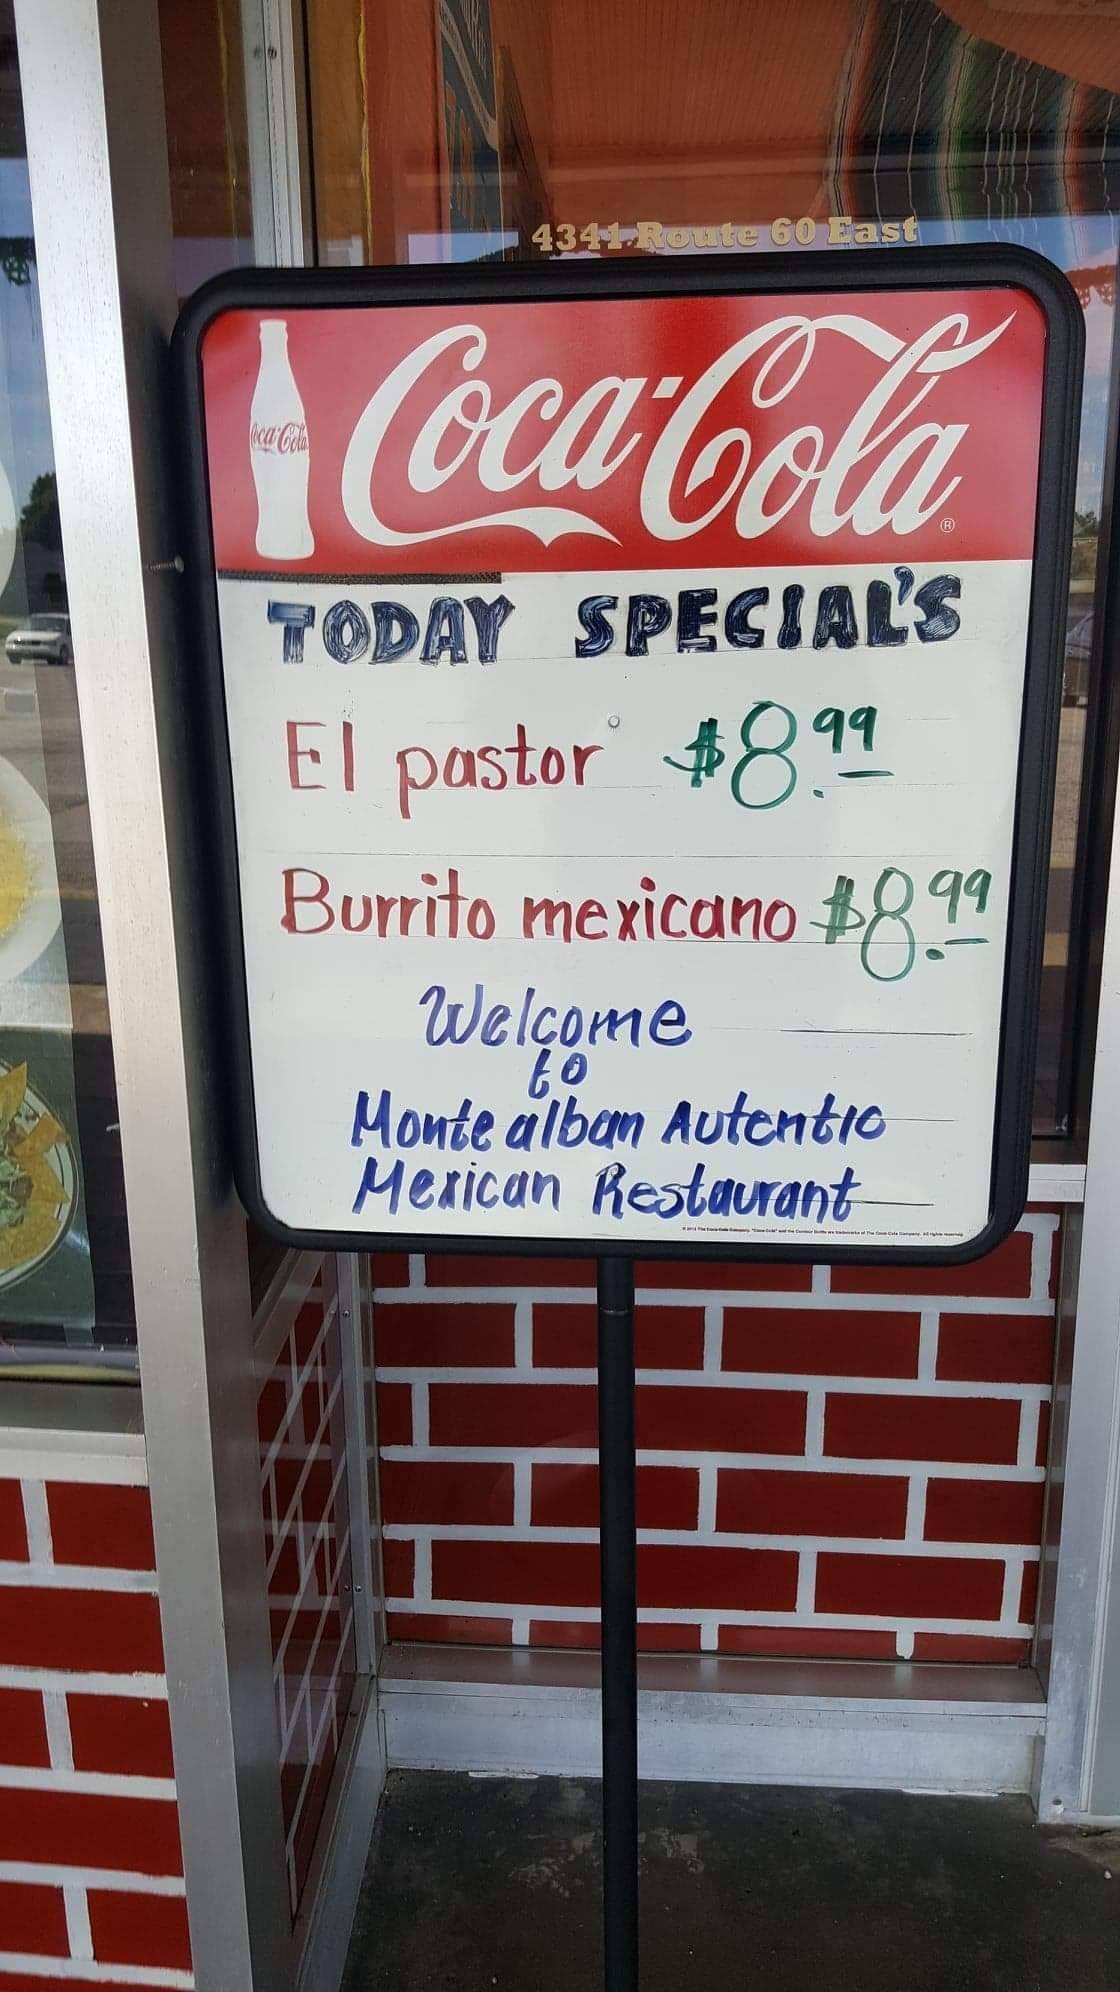 4341 Route 60 East
Coca-Cola
Coca-Cola ®
TODAY SPECIAL'S
El pastor $8.99
Burrito mexicano $8.99
Welcome
to
Monte alban Autentic
Mexican Restaurant